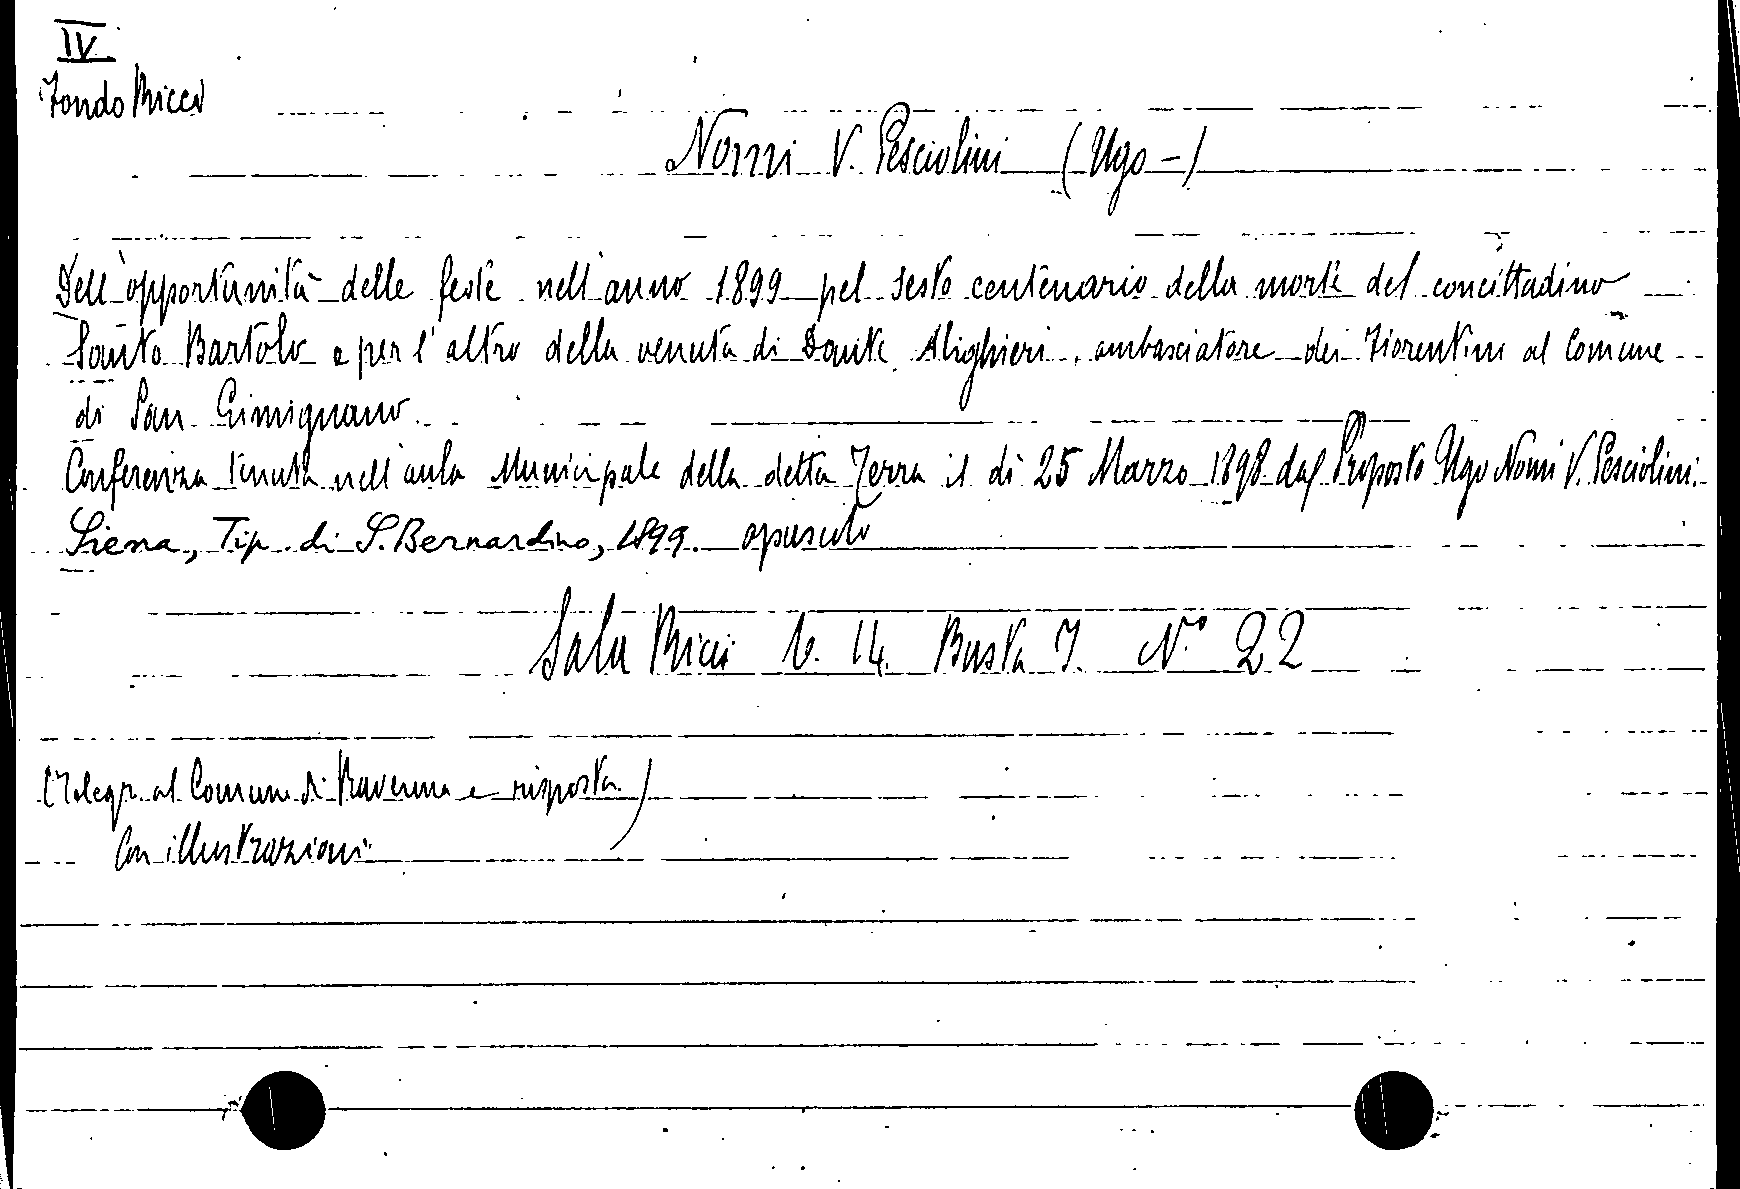 IV
Fondo Ricci
Nomi V. Pesciolini (Ugo -)
Dell'opportunità delle feste nell'anno 1899 pel sesto centenario della morte del concittadino
Santo Bartolo e per l'altro della venuta di Dante Alighieri, ambasciatore dei Fiorentini al Comune
di San Gimignano.
Conferenza tenuta nell'aula Municipale della detta Terra il dì 25 Marzo 1898 dal Proposto Ugo Nomi V. Pesciolini.
Siena, Tip. di S. Bernardino, 1899. opuscolo
Sala Ricci 14. Busta I. N.° 22
(Telegr. al Comune di Ravenna e risposta)
Con illustrazioni